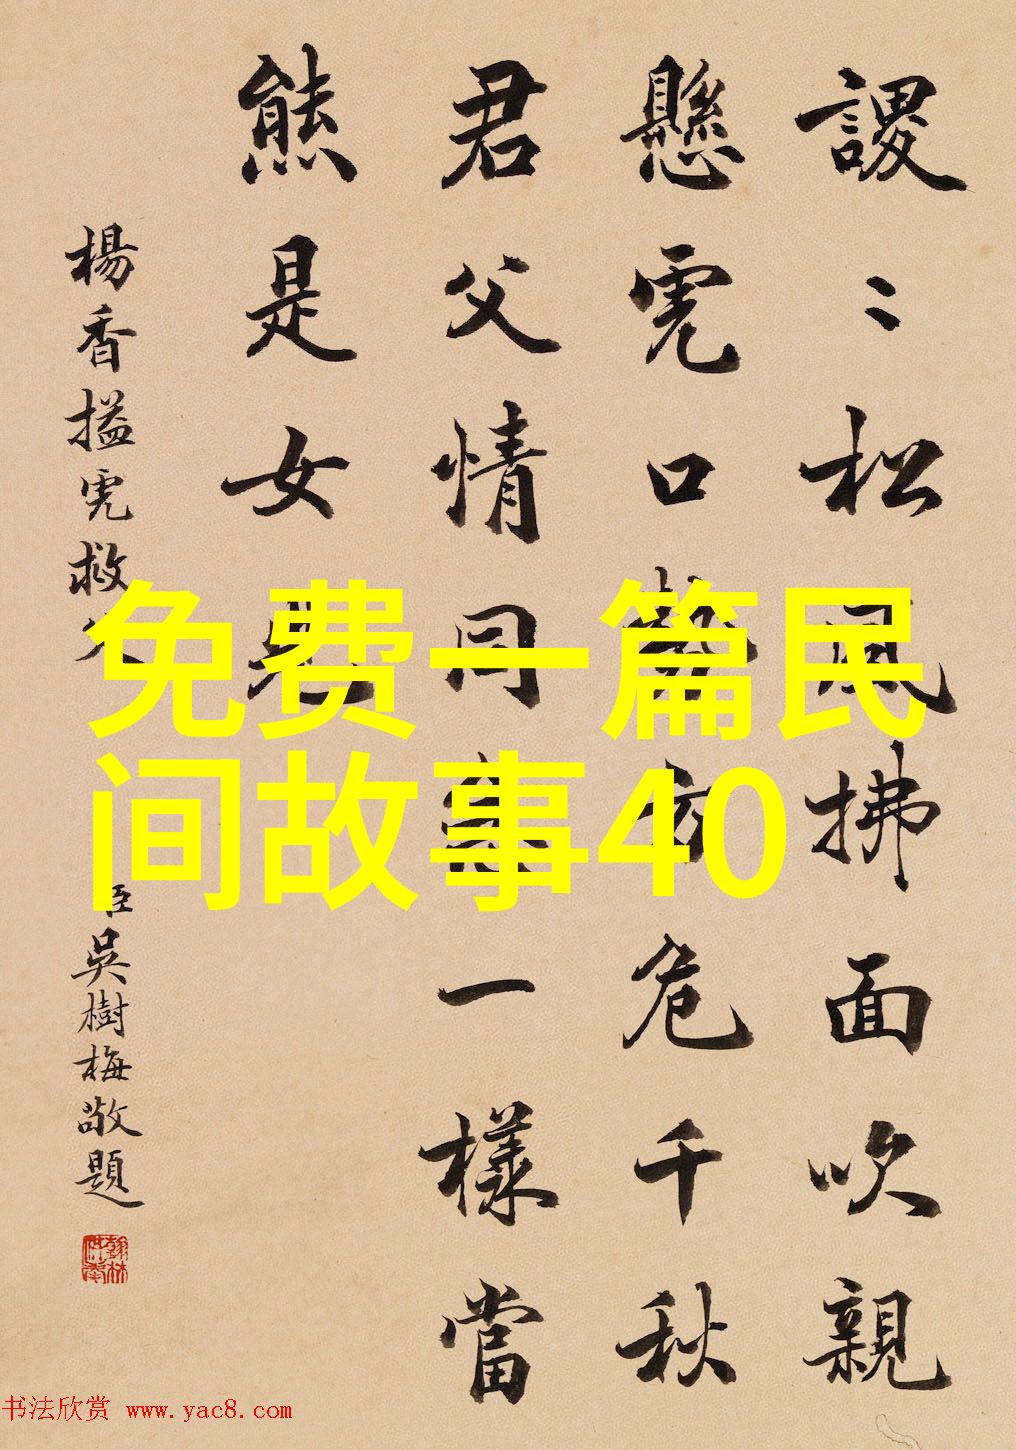 謖〻松風拂面吹親
懸虎口勢方危千秋
君父情同一樣當
熊是女兒
楊香搤虎救父
臣吳樹梅敬題
翰林供奉
免费一篇民
间故事40
书法欣赏 www.yac8.com